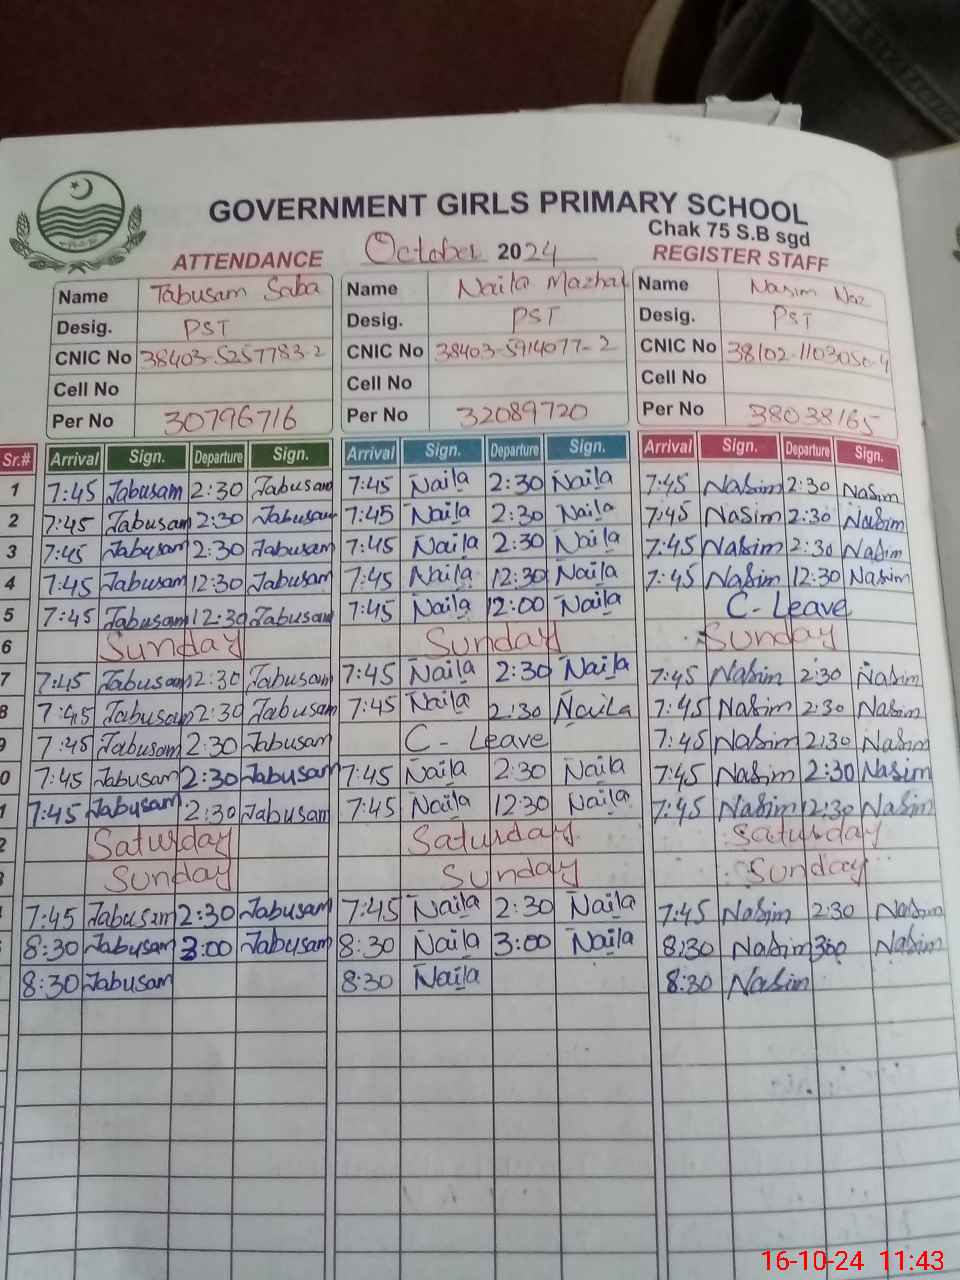 GOVERNMENT GIRLS PRIMARY SCHOOL
Chak 75 S.B sgd
ATTENDANCE October 2024 REGISTER STAFF
Name Tabusam Saba Name Naila Mazhar Name Nasim Naz
Desig. PST Desig. PST Desig. PST
CNIC No 38403-5257783-2 CNIC No 38403-5914077-2 CNIC No 38102-1103050-4
Cell No Cell No Cell No
Per No 30796716 Per No 32089720 Per No 38038165
Sr.# Arrival Sign. Departure Sign. Arrival Sign. Departure Sign. Arrival Sign. Departure Sign.
1 7:45 Tabusam 2:30 Tabusam 7:45 Naila 2:30 Naila 7:45 Nasim 2:30 Nasim
2 7:45 Tabusam 2:30 Tabusam 7:45 Naila 2:30 Naila 7:45 NaSim 2:30 Nasim
3 7:45 Tabusam 2:30 Tabusam 7:45 Naila 2:30 Naila 7:45 Nasim 2:30 Nasim
4 7:45 Tabusam 12:30 Tabusam 7:45 Naila 12:30 Naila 7:45 Nasim 12:30 Nasim
5 7:45 Tabusam 12:30 Tabusam 7:45 Naila 12:00 Naila C-Leave
6 Sunday Sunday Sunday
7 7:45 Tabusam 2:30 Tabusam 7:45 Naila 2:30 Naila 7:45 Nasim 2:30 Nasim
8 7:45 Tabusam 2:30 Tabusam 7:45 Naila 2:30 Naila 7:45 Nasim 2:30 Nasim
9 7:45 Tabusam 2:30 Tabusam C-Leave 7:45 Nasim 2:30 Nasim
0 7:45 Tabusam 2:30 Tabusam 7:45 Naila 2:30 Naila 7:45 Nasim 2:30 Nasim
1 7:45 Tabusam 2:30 Tabusam 7:45 Naila 12:30 Naila 7:45 Nasim 12:30 Nasim
2 Saturday Saturday Saturday
Sunday Sunday Sunday
7:45 Tabusam 2:30 Tabusam 7:45 Naila 2:30 Naila 7:45 Nasim 2:30 Nasim
8:30 Tabusam 3:00 Tabusam 8:30 Naila 3:00 Naila 8:30 Nasim 300 Nasim
8:30 Tabusam 8:30 Naila 8:30 Nasim
16-10-24 11:43